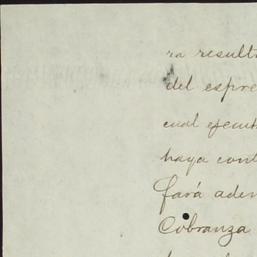 ra result
del espre
cual ejecut
haya cont
fará aden
Cobranza